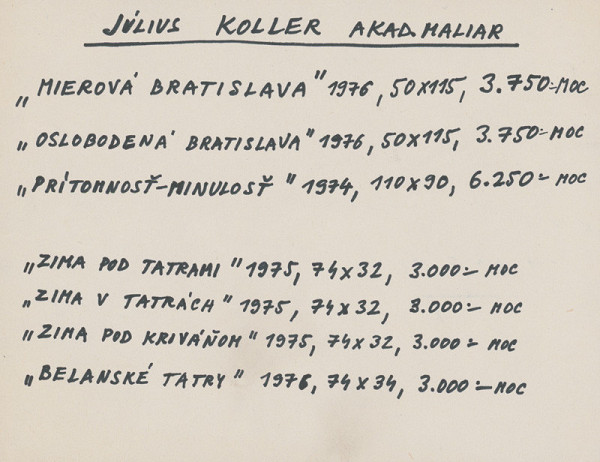 JÚLIUS KOLLER AKAD. MALIAR
„MIEROVÁ BRATISLAVA" 1976, 50x115, 3.750.- MOC
„OSLOBODENÁ BRATISLAVA" 1976, 50x115, 3.750.- MOC
„PRÍTOMNOSŤ-MINULOSŤ" 1974, 110x90, 6.250.- MOC
„ZIMA POD TATRAMI" 1975, 74x32, 3.000.- MOC
„ZIMA V TATRÁCH" 1975, 74x32, 3.000.- MOC
„ZIMA POD KRIVÁŇOM" 1975, 74x32, 3.000.- MOC
„BELANSKÉ TATRY" 1976, 74x34, 3.000.- MOC